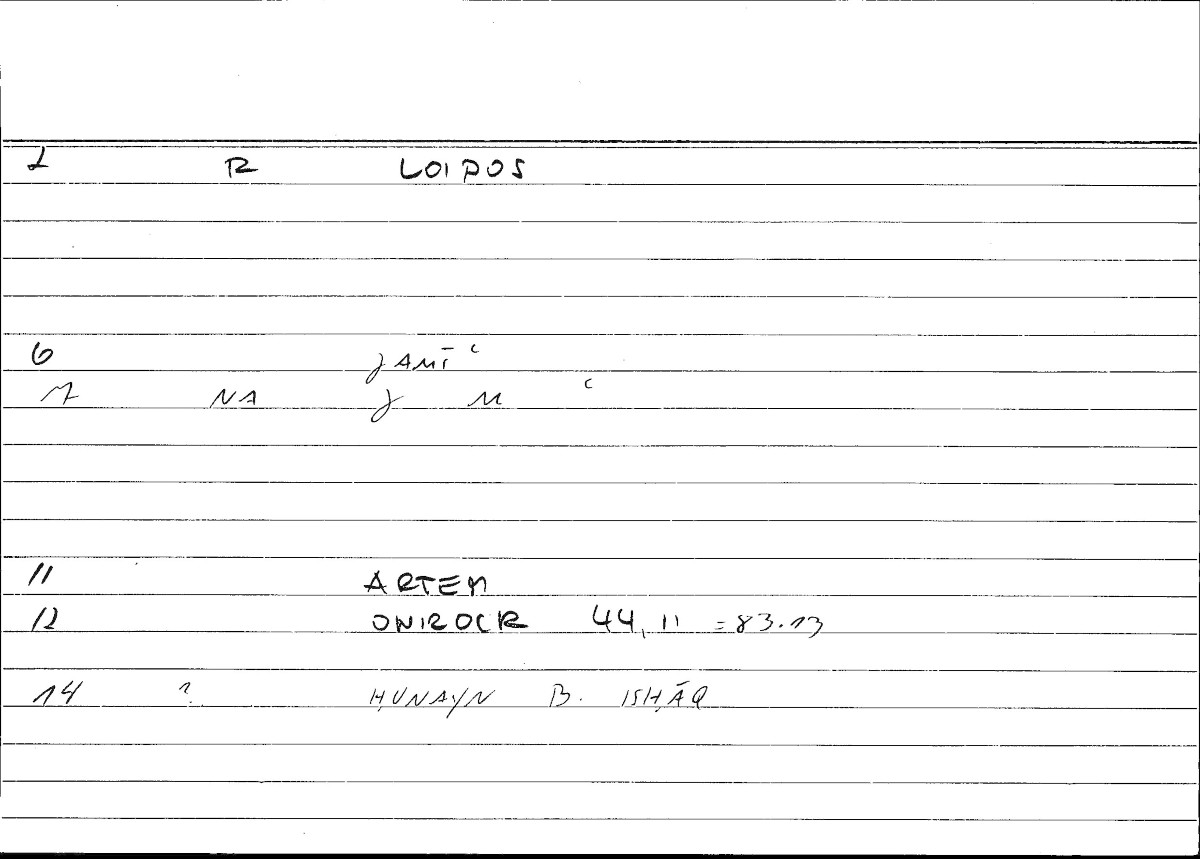 1 R LOIPOS
6 JAMĪ ʿ
7 NA J M ʿ
11 ARTEM
12 ONIROCR 44, 11 =83.13
14 ? ḤUNAYN B. ISḤĀQ